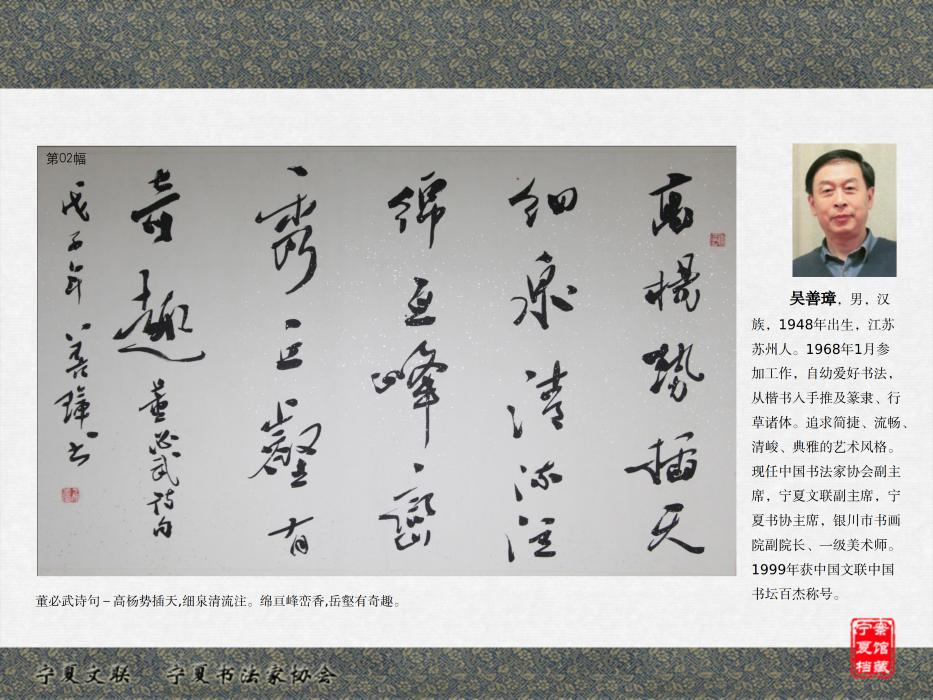 第02幅
高楊勢插天
细泉清流注
綿亘峰巒
秀丘壑有
奇趣
董必武诗句
戊子年
善璋书
吴善璋，男，汉
族，1948年出生，江苏
苏州人。1968年1月参
加工作，自幼爱好书法，
从楷书入手推及篆隶、行
草诸体。追求简捷、流畅、
清峻、典雅的艺术风格。
现任中国书法家协会副主
席，宁夏文联副主席，宁
夏书协主席，银川市书画
院副院长、一级美术师。
1999年获中国文联中国
书坛百杰称号。
董必武诗句－高杨势插天,细泉清流注。绵亘峰峦香,岳壑有奇趣。
宁夏文联 宁夏书法家协会
宁夏档
案馆藏